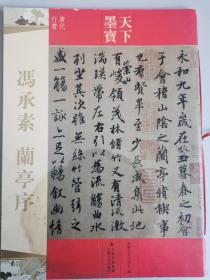 天下
墨寶
唐代
行書
馮承素 蘭亭序
永和九年歲在癸丑暮春之初會
于會稽山陰之蘭亭脩稧事
也羣賢畢至少長咸集此地
有崇山峻領茂林脩竹又有清流激
湍暎帶左右引以為流觴曲水
列坐其次雖無絲竹管弦之
盛一觴一詠亦足以暢敘幽情